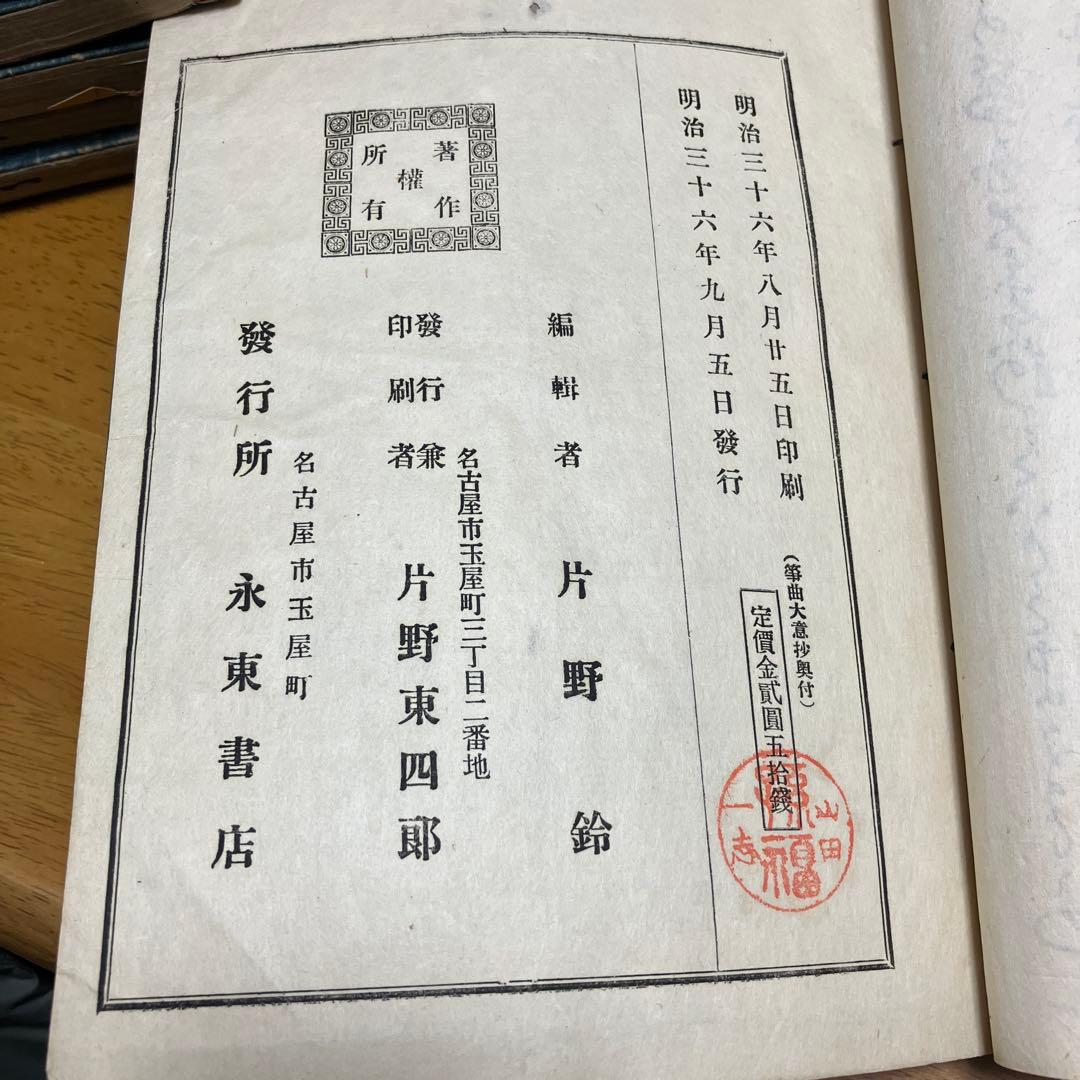 明治三十六年八月廿五日印刷
明治三十六年九月五日發行
（箏曲大意抄奥付）
定價金貳圓五拾錢
山田
一志
福
著作權所有
編輯者　片野鈴
名古屋市玉屋町三丁目二番地
發行兼印刷者　片野東四郎
名古屋市玉屋町
發行所　永東書店